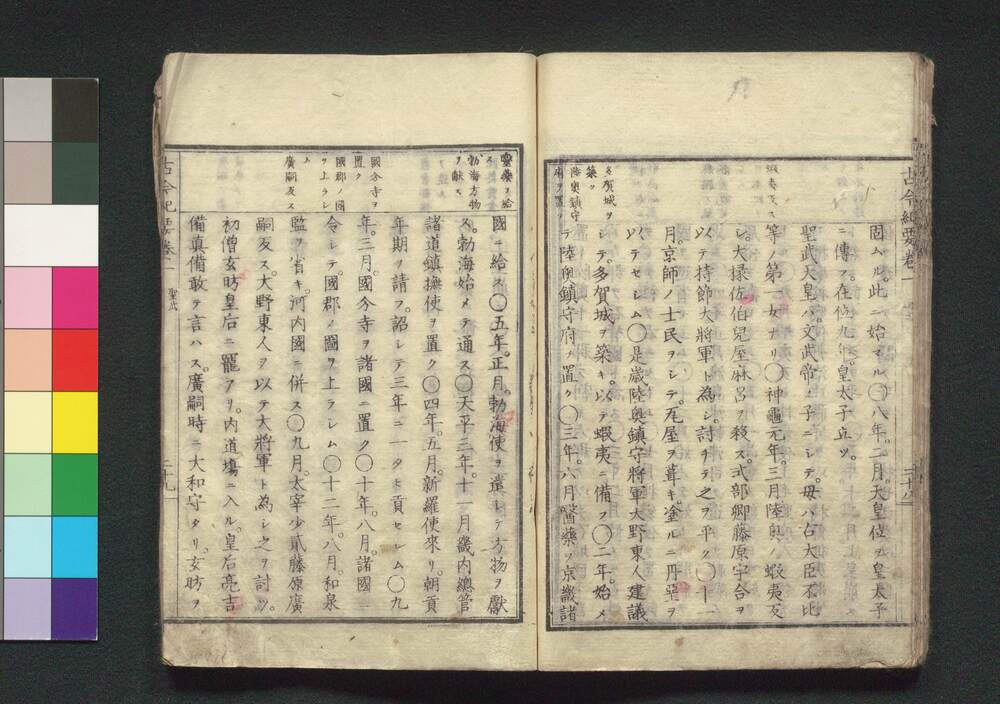 古今紀要卷一
三十八
固ハル。此ニ始マル〇八年。二月。天皇位ヲ皇太子
ニ傳フ。在位九年。皇太子立ツ。
聖武天皇ハ。文武帝ノ子ニシテ。母ハ右大臣不比
等ノ第一女ナリ〇神龜元年。三月陸奥ノ蝦夷反
シ。大掾佐伯兒屋麻呂ヲ殺ス。式部卿藤原宇合ヲ
以テ持節大將軍ト為シ。討チテ之ヲ平ク〇十一
月。京師ノ士民ヲシテ。瓦屋ヲ葺キ。塗ルニ丹堊ヲ
以テセシム〇是歳陸奥鎮守將軍大野東人建議
シテ。多賀城ヲ築キ。以テ蝦夷ニ備フ〇二年。始メ
テ陸奥鎮守府ヲ置ク〇三年。八月。醫藥ヲ京畿諸
蝦夷反ス
多賀城ヲ
築ク
陸奥鎮守
府ヲ置ク
國ニ給ス〇五年。正月。勃海使ヲ遣シテ方物ヲ獻
ス。勃海始メテ通ス〇天平三年。十一月畿内總管
諸道鎮撫使ヲ置ク〇四年。五月。新羅使來リ。朝貢
年期ヲ請フ。詔シテ三年ニ一タヒ貢セシム〇九
年。三月。國分寺ヲ諸國ニ置ク〇十年。八月。諸國ニ
令シテ。國郡ノ圖ヲ上ラシム〇十二年。八月。和泉
監ヲ省キ。河内國ニ併ス〇九月。太宰少貳藤原廣
嗣反ス。大野東人ヲ以テ大將軍ト為シ之ヲ討ツ。
初僧玄昉皇后ニ寵アリ。内道塲ニ入ル。皇后亮吉
備真備敢テ言ハス。廣嗣時ニ大和守タリ。玄昉ヲ
醫藥ヲ給
ス
勃海方物
ヲ献ス
國分寺ヲ
置ク
國郡ノ圖
ヲ上ラシ
ム
廣嗣反ス
古今紀要卷一
聖武
三十九